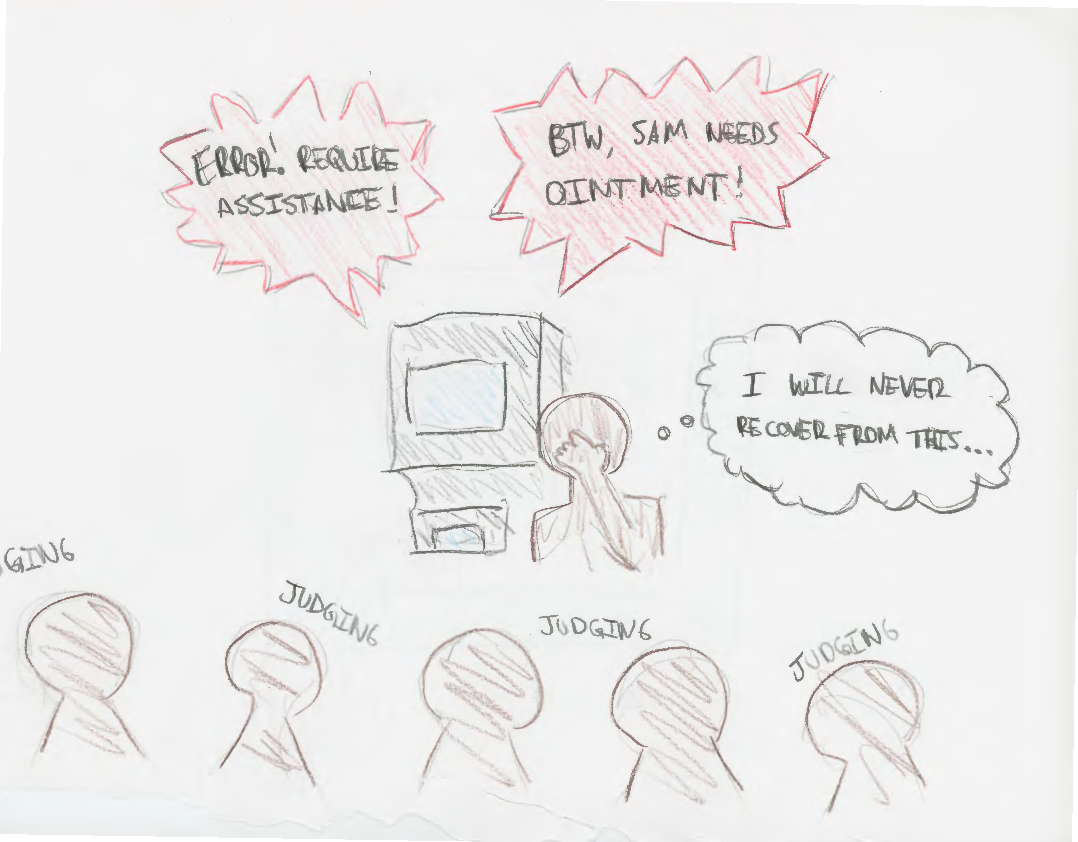 ERROR! REQUIRE
ASSISTANCE!
BTW, SAM NEEDS
OINTMENT!
I WILL NEVER
RECOVER FROM THIS...
GING
JUDGING
JUDGING
JUDGING